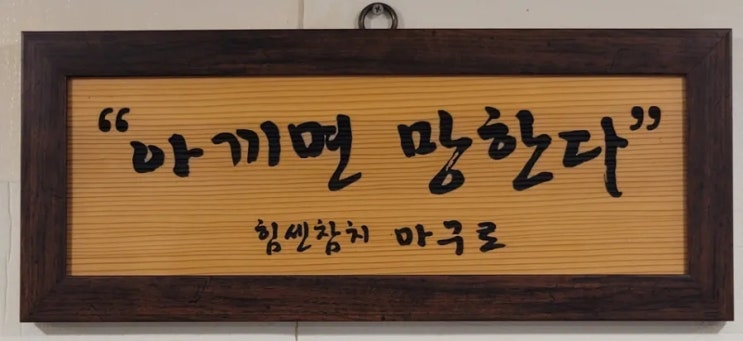 “아끼면 망한다”
힘센참치 마구로